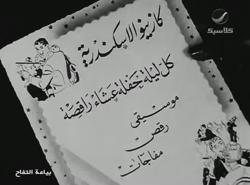 كلاسيك
كازينو الاسكندرية
كل ليلة حفلة عشاء راقصة
موسيقى
رقص
مفاجآت
بياعة التفاح